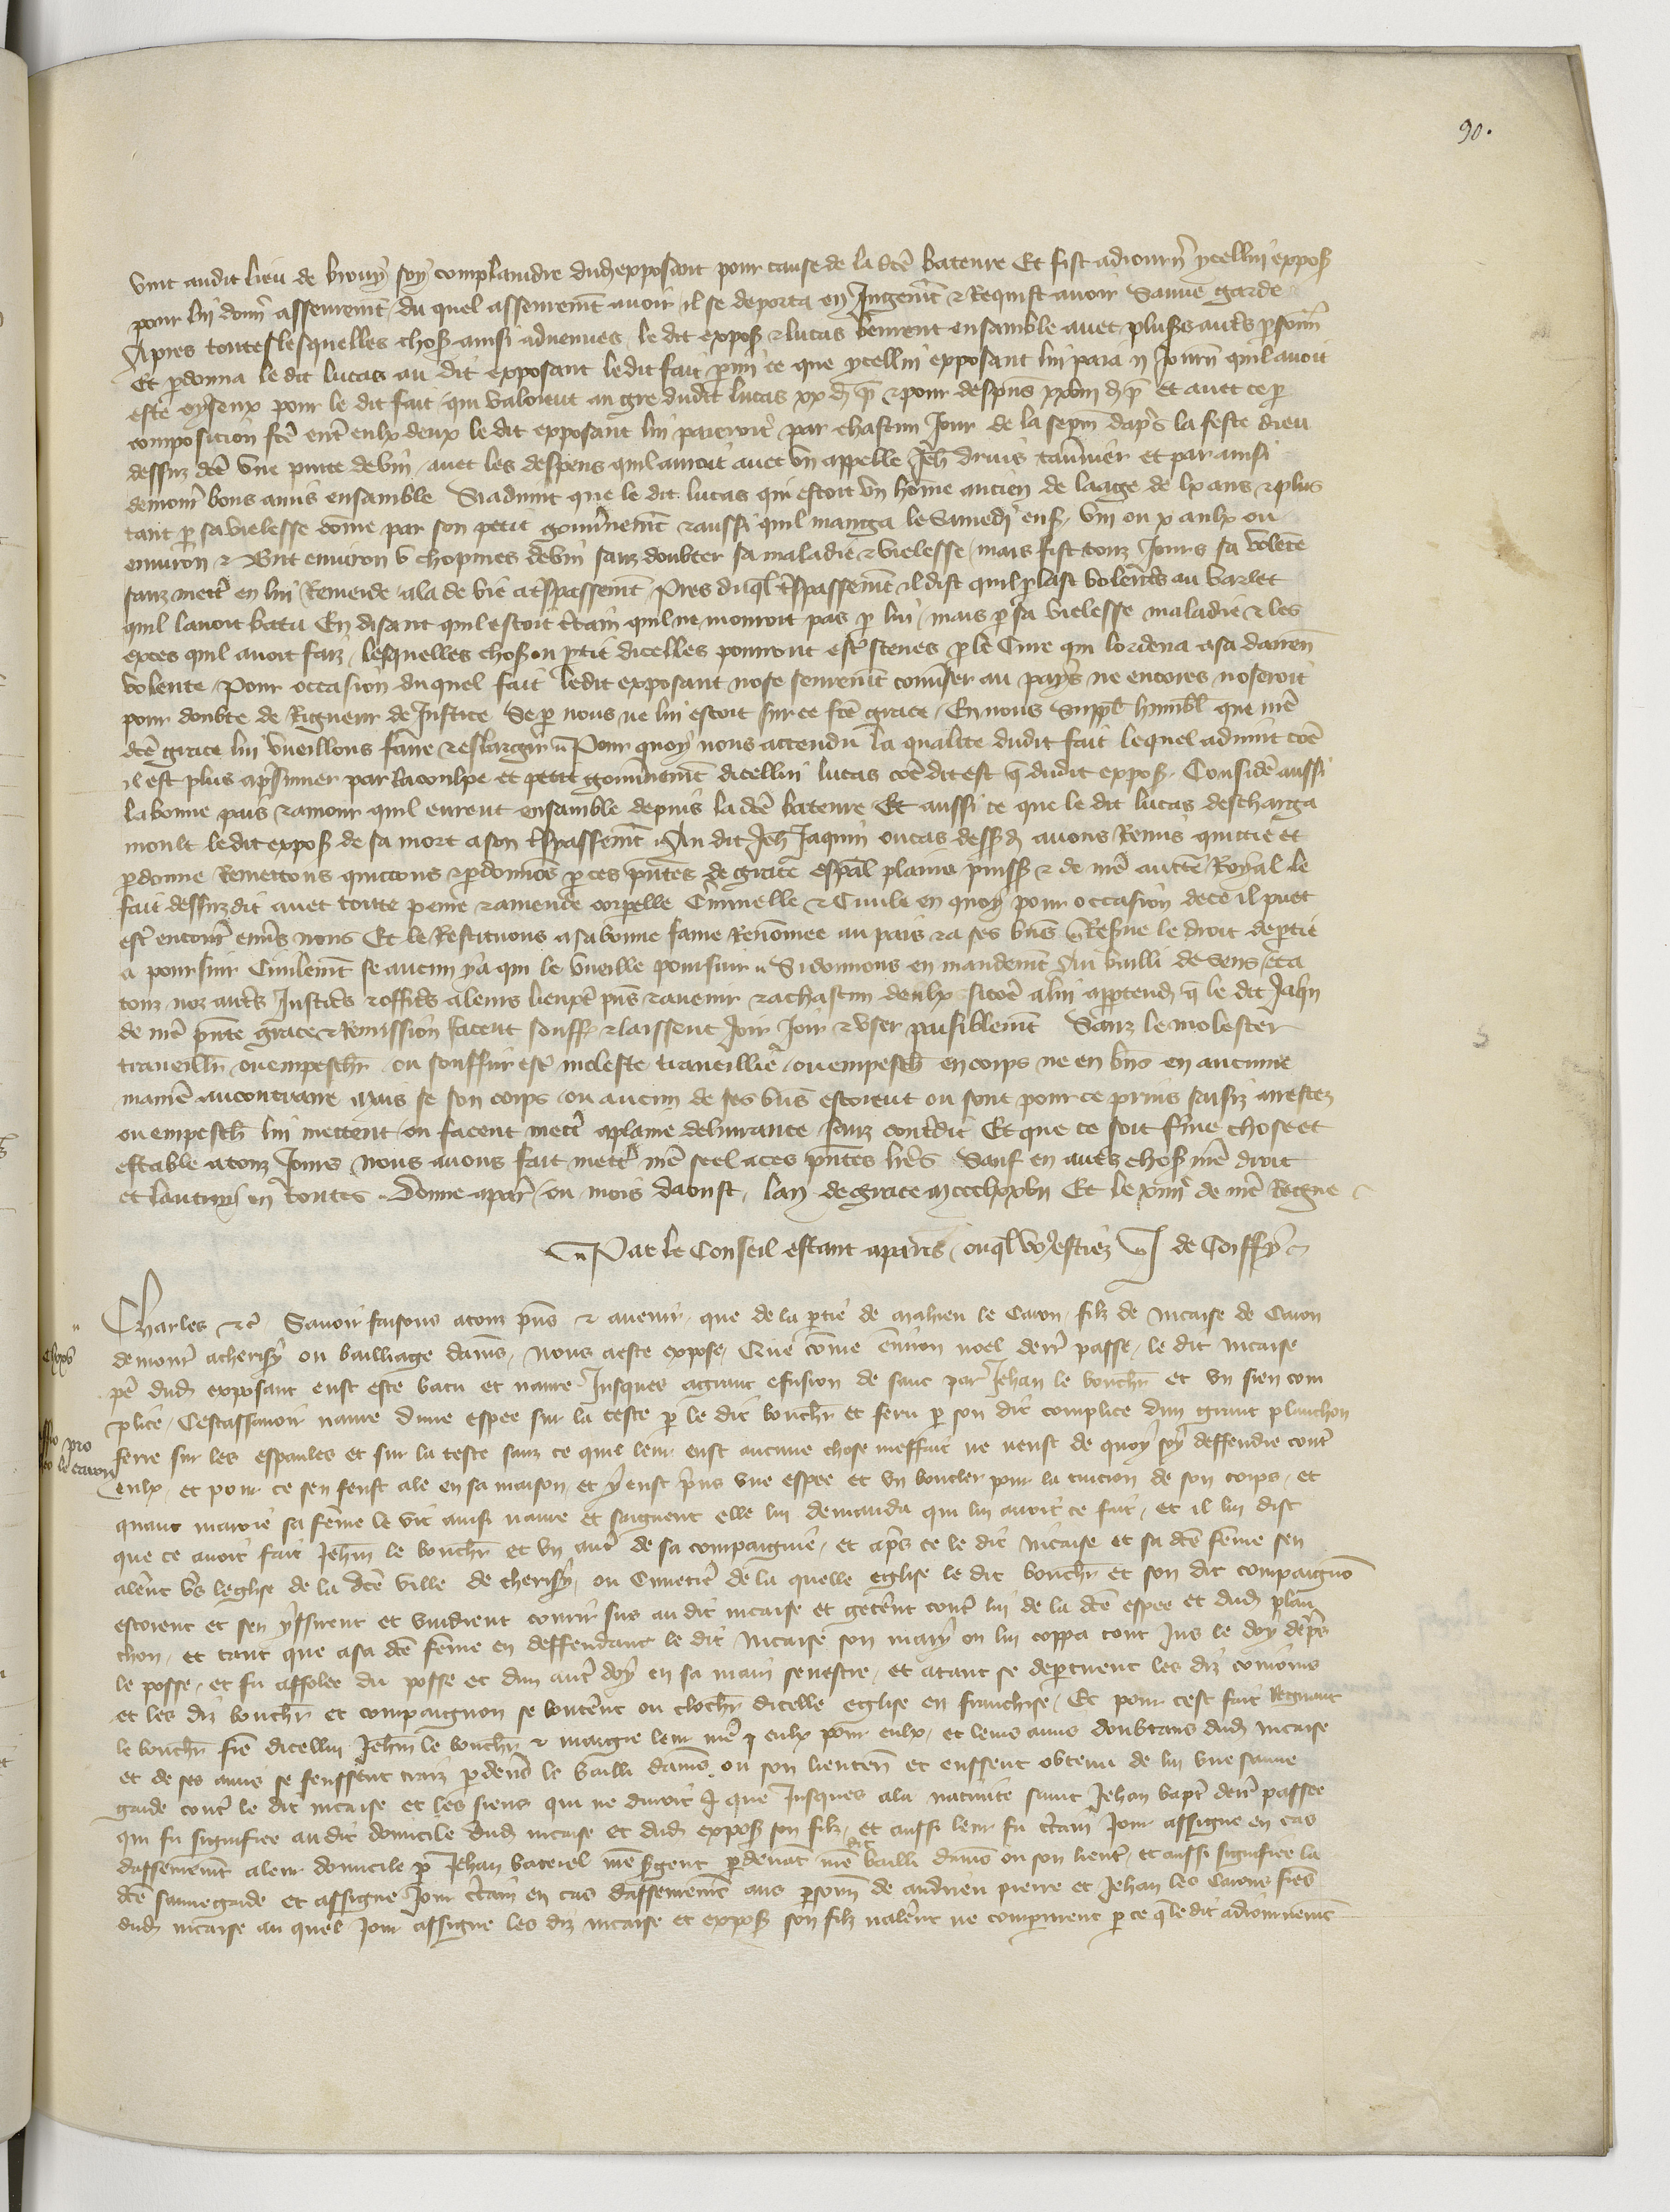 90.
vint audit lieu de brouy soy complaindre dud exposant pour cause de la dce bateure Et fist adiourn ycellui expos
pour lui donn asseurement du quel asseurement avoir il se deporta en Jugemt & Requist avoir Sauve garde
Apres toutes lesquelles chos ainsi advenues le dit expos & lucas beurent ensamble avec plus autrs psonn
Et pdonna le dit lucas au dit exposant le dit fait pmi ce que ycellui exposant lui paia journ quil avoit
este oyseux pour le dit fait qui valoient au gre dudit lucas xx d p & pour despens xxviii d p et avec ce p
composicion fce entre eulx deux le dit exposant lui paieroit par chascun Jour de la sepm daps la feste dieu
dessuz dce une pinte de vin avec les despens quil auroit avec un appelle Jeh druis tavnier et par ainsi
demour bons amis ensamble Si advint que le dit lucas qui estoit un home ancien de laage de lx ans & plus
tant p sa vielesse come par son petit gouvnemt & aussi quil manga le Samedi ens viii ou x aulx ou
environ & But environ v chopines de vin sanz doubter sa maladie & vielesse mais fist touz Jours sa volente
sanz mectr en lui Remeide ala de vie a trespassemt Pres duql trespassemt il dist quil plast volentrs au varlet
quil lavoit batu En disant quil estoit ctain quil ne mouroit pas p lui mais p sa vielesse maladie & les
exces quil avoit faiz lesquelles chos ou ptie dicelles pourront estre sceues p le Cure qui lordena a sa darren
volente Pour occasion duquel fait ledit exposant nose seuremt convser au pays ne encores noseroit
pour doubte de Rigueur de Justice Se p nous ne lui estoit sur ce fce grace En nous suppl humbl que nre
dce grace lui vueillons faire & eslargir Pour quoy nous attendu la qualite dudit fait lequel advint coe
il est plus a psumer par la coulpe et petit gouvnemt dicellui lucas coe dit est q dudit expos Considere aussi
la bonne pais & amour quil eurent ensamble depuis la dce bateure Et aussi ce que le dit lucas descharga
moult le dit expos de sa mort a son trespassemt Au dit Jeh Jaquin ou cas dessd avons Remis quictie et
pdonne Remettons quictons & pdonnons p ces pntes de grace espal plaine puiss & de nre aucte Royal le
fait dessuzdit avec toute peine & amende corpelle Ciminelle & Civile en quoy pour occasion de ce il puet
estre encour envs nous Et le Restituons a sa bonne fame Renommee au pais & a ses bns Resve le droit de ptie
a poursuir Civilemt se aucun y a qui le vueille poursuir Si donnons en mandemt Au bailli de Sens et a
touz noz autrs Justics & offics a leurs lieuxt pns & avenir & a chascun deulx si coe a lui apptend q le dit Jaqn
de nre pnte grace & Remission facent souff & laissent Joir Joir & user paisiblemt Sanz le molester
traveilln ou empeschr ou souffrir estre moleste traveillie ou empesch en corps ne en bns en aucune
maniere au contraire mais se son corps ou aucun de ses bns estoient ou sont pour ce prins saisiz arrestez
ou empesch lui mettent ou facent mectr a plaine delivrance sanz contdit Et que ce soit fme chose et
estable a touz Jours Nous avons fait mettr nre seel a ces pntes lres Sauf en autrs chos nre droit
et lautruy en toutes Donne a par ou mois daoust lan de grace mccciiiixxvii Et le xiiiie de nre Regne
Par le Conseil estant a paris ouql vo estiez J de Coiffy
Charles &c Savoir faisons a touz pns & avenir que de la ptie de mahieu le Caron filz de Nicaise de Caron
demour a cherisy ou bailliage damns nous a este expose Que come environ noel derr passe le dit Nicaise
pe dud exposant eust este batu et navre Jusques a grant efusion de sanc par Jehan le bouchr et un sien com
plice Cestassavoir navre dune espee sur la teste p le dit bouchr et feru p son dit complice dun grant planchon
ferre sur les espaules et sur la teste sanz ce quil leur eust aucune chose meffait ne neust de quoy soy deffendre contr
eulx et pour ce sen feust ale en sa maison et y eust prins une espee et un boucler pour la tuicion de son corps et
quant maroie sa feme le vit ainsi navre et saignent elle lui demanda qui lui avoit ce fait et il lui dist
que ce avoit fait Jehan le bouchr et un autr de sa compaignie et aprs ce le dit Nicaise et sa dce feme sen
alerent vers leglise de la dce ville de cherisy ou Cimetiere de la quelle eglise le dit bouchr et son dit compaignon
estoient et sen yssirent et vindrent courir sus au dit nicaise et geterent contr lui de la dce espee et dud plan
chon et tant que a sa dce feme en deffendant le dit Nicaise son mary on lui coppa tout Jus le doy deprs
le posse et fu affolee du posse et dun autr doy en sa main senestre et atant se deptirent les diz conioins
et les diz bouchr et compaignon se bouterent ou clochr dicelle eglise en franchise Et pour cest fait Regnaut
le bouchr frere dicellui Jehan le bouchr & margie leur mere eulx pour eulx et leurs amis doubtans dud Nicaise
et de ses amis se feussent traiz p devers le bailli damns ou son lieuten et eussent obtenu de lui une sauve
garde contr le dit nicaise et les siens qui ne duroit que Jusques a la nativite saint Jehan bapt derr passee
qui fu signifiee au dit domicile dud nicaise et dud expos son filz et aussi leur fu ctain Jour assigne en cas
dasseuremt a leur domicile p Jehan bateiel nre sgent p devat nre dit bailli damns ou son lieut et aussi signifiee la
dce sauvegarde et assigne Jour ctain en cas dasseuremt aus psonn de andrieu pierre et Jehan les Carons freres
dud nicaise au quel Jour assigne les diz nicaise et expos son filz nalerent ne comparurent p ce q le dit adiournemt
pro
le caron